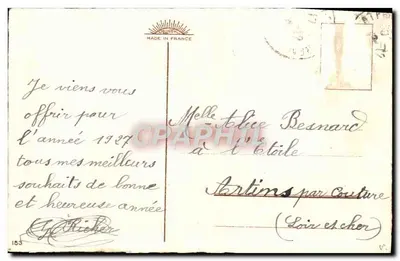 MADE IN FRANCE
Je viens vous
offrir pour
l'année 1927
tous mes meilleurs
souhaits de bonne
et heureuse année
Richer
153
Melle Alice Besnard
à l'Etoile
Artins par Couture
(Loir et cher)